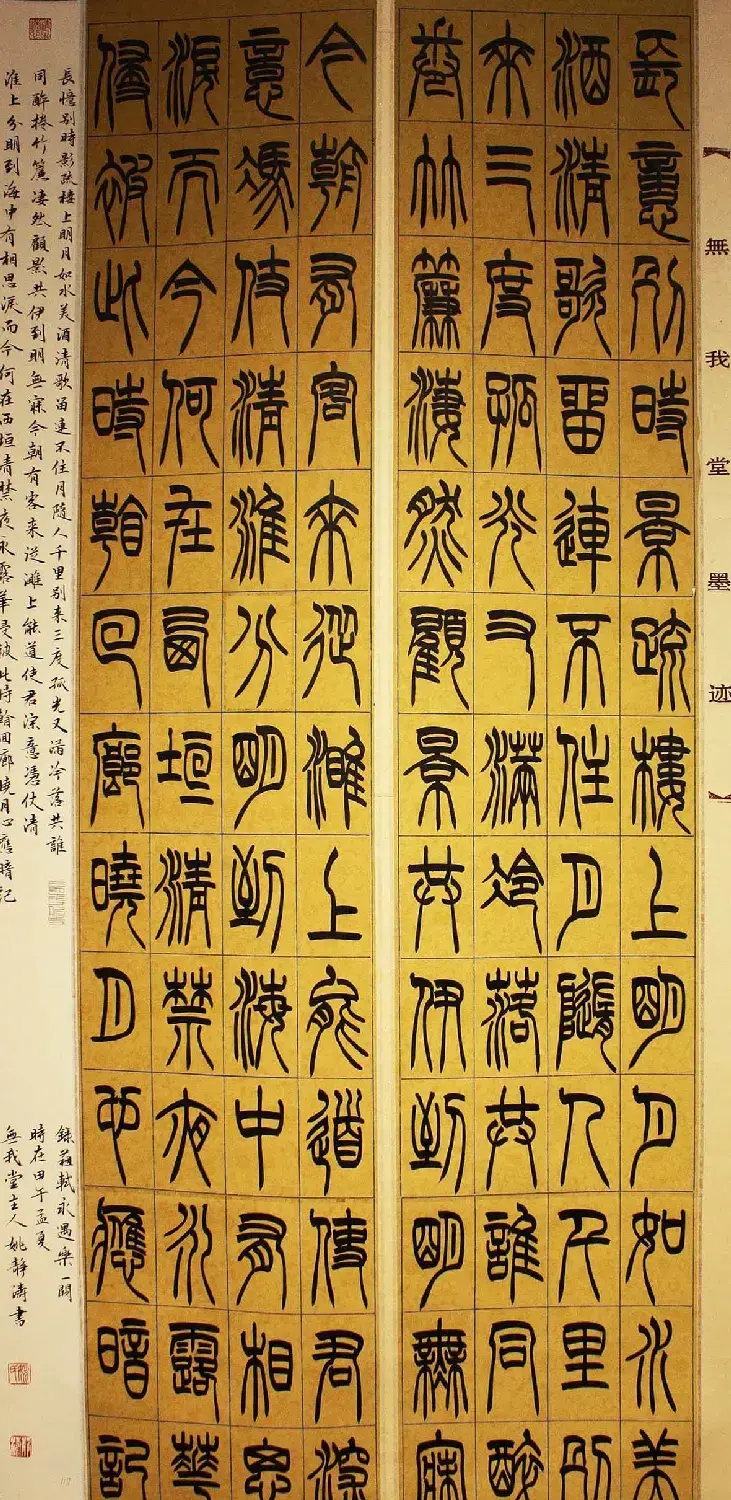 【無我堂墨迹】
長意別時景疏樓上明月如水美
酒清歌留連不住月隨人千里別
來三度孤光又滿冷落共誰同醉
卷竹簾淒然顧景共伊到明無寐
今朝有客來從濉上能道使君深
意馮伎清淮分明到海中有相思
淚而今何在西垣清禁夜永露華
侵被此時翰回廊曉月也應暗記
長憶別時影疏樓上明月如水美酒清歌留連不住月隨人千里別來三度孤光又滿冷落共誰
同醉捲竹簾淒然顧影共伊到明無寐今朝有客来從濉上能道使君深意憑仗清
淮上分明到海中有相思淚而今何在西垣清禁夜永露華侵被此時翰回廊曉月心應暗記
錄蘇軾永遇樂一闋
時在甲午孟夏
無我堂主人姚靜濤書